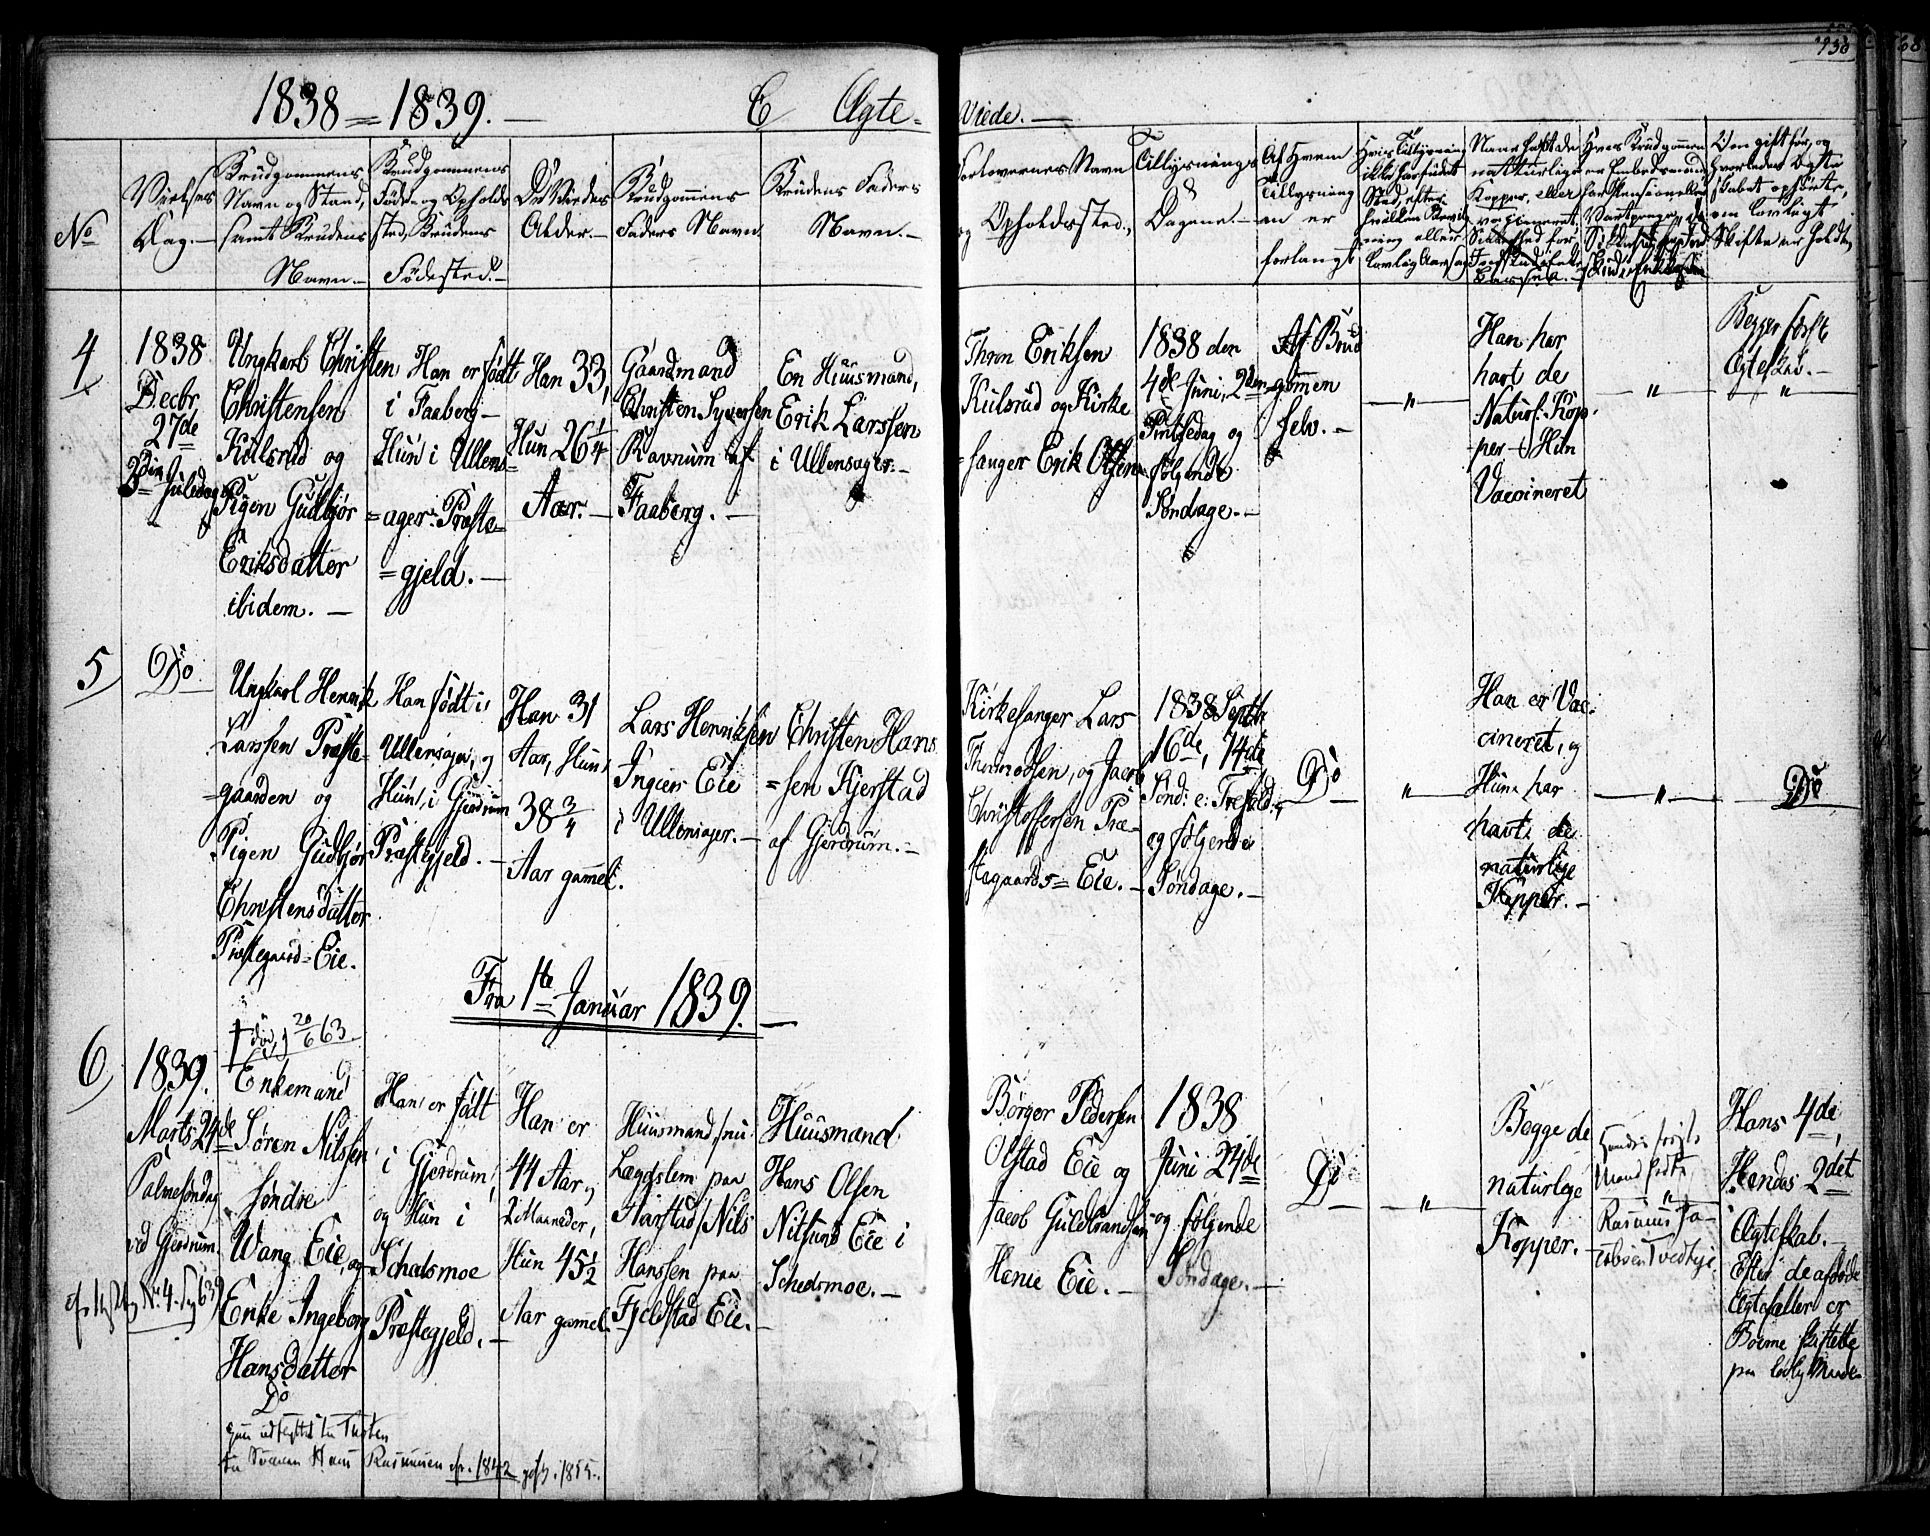 1838 = 1839. —
C Ægte-
Viede. —
No
Vielses
Dag. —
Brudgommens
Navn og Stand,
samt Brudens
Navn. —
Brudgommens
Føde- og Opholds
sted, Brudens
Fødested. —
De Viedes
Alder. —
Brudgommens
Faders Navn.
Brudens Faders
Navn. —
Forlovernes Navn
og Opholdssted.
Tillysnings
Dagene. —
Af Hvem
Tillysning
en er
forlangt
4
1838
Decbr
27de
3die Juledag
Ungkarl Christen
Christensen
Kulsrud og
Pigen Gudbjør
Eriksdatter
ibidem. —
Han er født
i Faaberg —
Hun i Ullens=
=ager: Præste=
=gjeld. —
Han 33,
Hun 26 1/4
Aar. —
Gaardmand
Christen Syversen
Ravnum af
Faaberg. —
En Huusmand,
Erik Larssen
i Ullensager. —
Thron Eriksen
Kulsrud og Kirke
=sanger Erik Olsen
1838 den
4de Juni, 2den
Pintsedag og
følgende
Søndage. —
Af Brud
gommen
selv. —
— " —
Han har
havt de
Naturl: Kop-
per — Hun
Vaccineret
— " —
Begges første
Ægteskab. —
— " —
5
Do
Ungkarl Henrik
Larssen Præste-
=gaarden og
Pigen Gudbjør
Christensdatter
Præstegaard=Eie.
Han født i
Ullensager, og
Hun i Gjerdrum
Præstegjeld. —
Han 31
Aar, Hun
38 3/4
Aar gammel.
Lars Henriksen
Ingier Eie
i Ullensager. —
Christen Hans
=sen Kjerstad
af Gjerdrum. —
Kirkesanger Lars
Thormodsen, og Jacob
Christoffersen Præ-
stegaards= Eie. —
1838 Septbr
16de, 14de
Sønd: e: Trefold:
og følgende
Søndage. —
Do
"
Han er Vac-
cineret, og
Hun har
havt de
naturlige
Kopper. —
— " —
Do
Fra 1te Januar 1839. —
6
† død 20/6 63
1839.
Marts 24de
Palmesøndag
ved Gjerdrum.
Enkemand
Søren Nilsen
Søndre
Wang Eie, og
Enke Ingeborg
Hansdatter
Do
Han er født
i Gjerdrum,
og Hun i
Schedsmoe
Præstegjeld. —
Han er
44 Aar,
2 Maaneder,
Hun 45 1/2
Aar gammel
Huusmand, nu
Lægdslem paa
Harstad / Nils
Hanssen paa
Fjeldstad Eie. —
Huusmand
Hans Olsen
Nitsund Eie i
Schedsmoe. —
Børger Pedersen
Olstad Eie og
Jacob Guldbrandsen
Henie Eie. —
1838
Juni 24de
og følgende
Søndage. —
Do
— " —
Begge de
naturlige
Kopper. —
Mand
Rasmus Ja-
cobsen
Hans 4de,
Hendes 2det
Ægteskab. —
Efter de afdøde
Ægtefæller er
Boerne skiftede
paa lovlig Maade
Rasmusen cfr. 1842